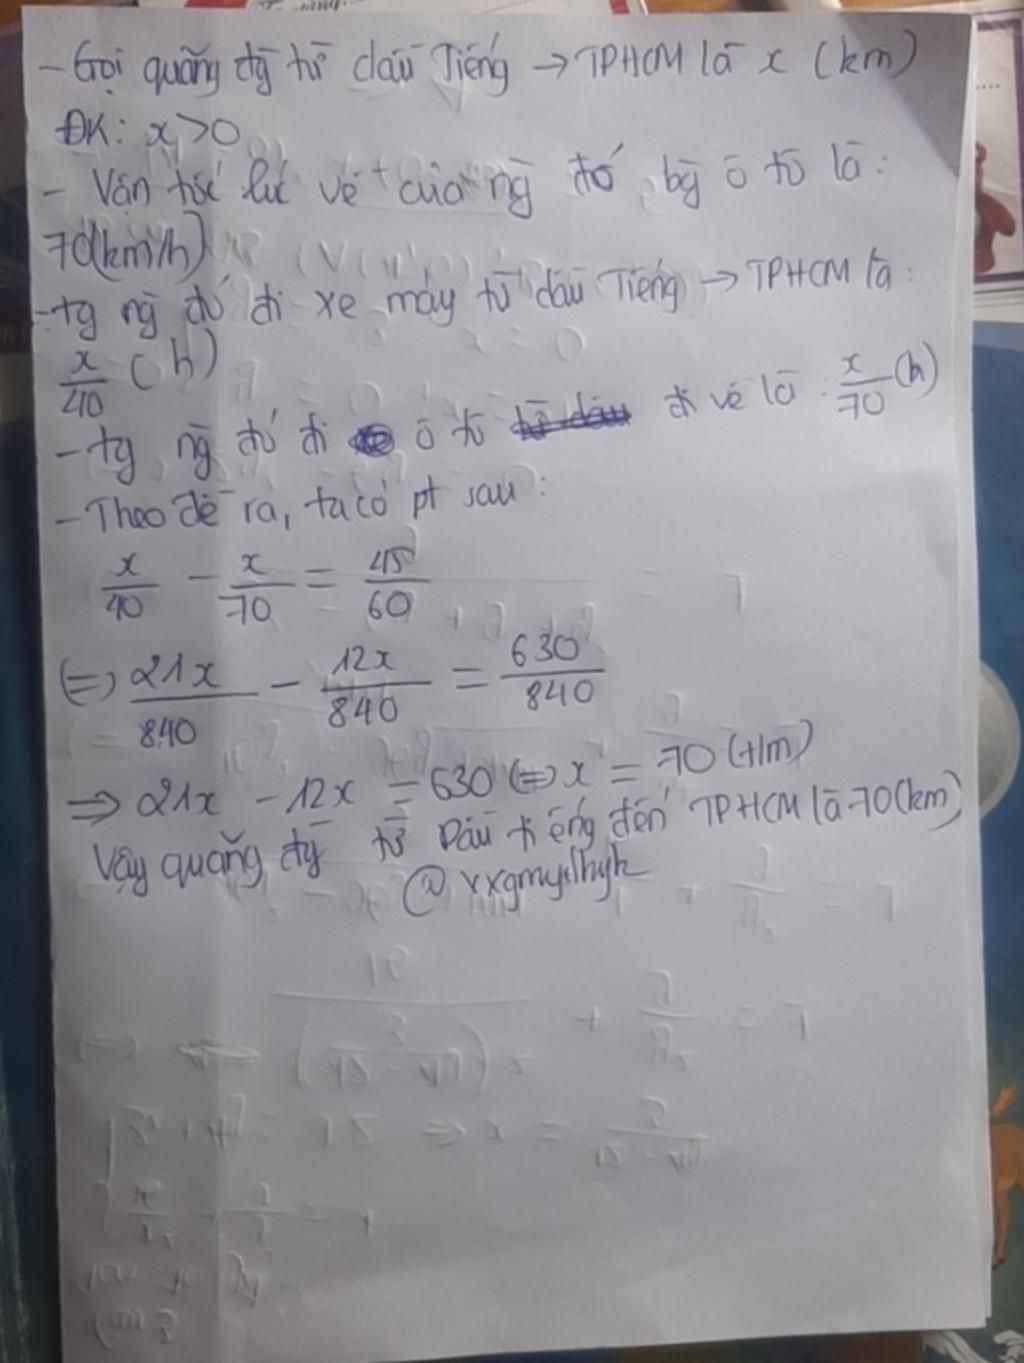 - Gọi quãng đg từ dầu Tiếng → TPHCM là x (km)
ĐK: x>0
- Vận tốc lúc về của ng đó bg ô tô là:
70(km/h)
- tg ng đó đi xe máy từ dầu Tiếng → TPHCM là:
x/40 (h)
- tg ng đó đi ô tô đi về là: x/70 (h)
- Theo đề ra, ta có pt sau:
x/40 - x/70 = 45/60
(=) 21x/840 - 12x/840 = 630/840
⇒ 21x - 12x = 630 (=) x = 70 (t/m)
Vậy quãng đg từ Dầu tiếng đến TPHCM là 70(km)